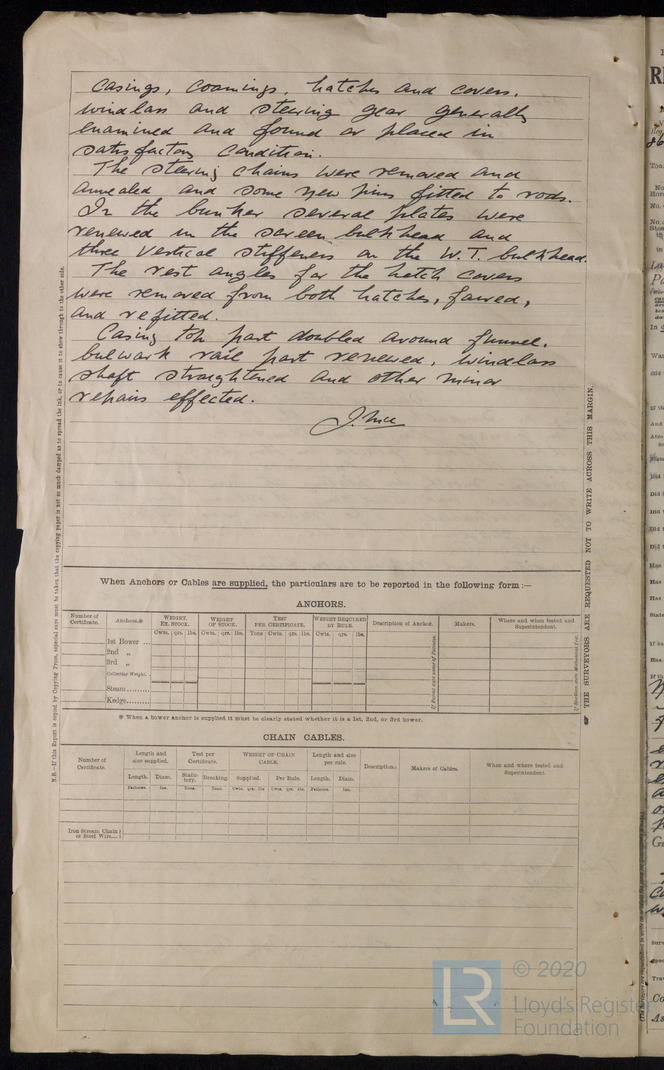 casings, coamings, hatches and covers,
windlass and steering gear generally
examined and found or placed in
satisfactory condition.
The steering chains were removed and
annealed and some new pins fitted to rods.
In the bunker several plates were
renewed in the screen bulkhead and
three vertical stiffeners on the W.T. bulkhead.
The rest angles for the hatch covers
were removed from both hatches, faired,
and refitted.
Casing top part doubled around funnel,
bulwark rail part renewed, windlass
shaft straightened and other minor
repairs effected.
N.B.—If this Report is copied by Copying Press, especial care must be taken that the copying paper is not so much damped as to spread the ink, or to cause it to show through to the other side.
THE SURVEYORS ARE REQUESTED NOT TO WRITE ACROSS THIS MARGIN.
When Anchors or Cables are supplied, the particulars are to be reported in the following form:—
ANCHORS.
Number of Certificate. Anchors.※ WEIGHT. EX. STOCK. WEIGHT OF STOCK. TEST PER CERTIFICATE. WEIGHT REQUIRED BY RULE. Description of Anchor. Makers. Where and when tested and Superintendent.
Cwts. qrs. lbs. Cwts. qrs. lbs. Tons Cwts. qrs. lbs. Cwts. qrs. lbs.
1st Bower ...
2nd „
3rd „
Collective Weight.
Stream.........
Kedge.........
※ When a bower anchor is supplied it must be clearly stated whether it is a 1st, 2nd, or 3rd bower.
CHAIN CABLES.
Number of Certificate. Length and size supplied. Test per Certificate. WEIGHT OF CHAIN CABLE. Length and size per rule. Description. Makers of Cables. When and where tested and Superintendent.
Length. Diam. Statutory. Breaking. Supplied. Per Rule. Length. Diam.
Fathoms. Ins. Tons. Tons. Cwts. qrs. lbs Cwts. qrs. lbs Fathoms. Ins.
Iron Stream Chain
or Steel Wire....
LR
© 2020
Lloyd's Register
Foundation